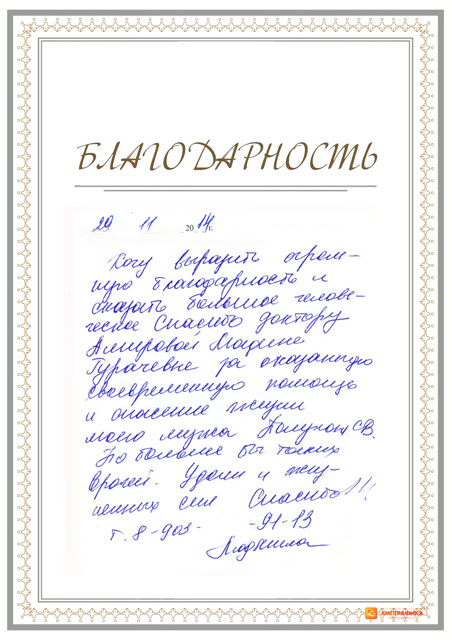 БЛАГОДАРНОСТЬ
29 11 2014г.
Хочу выразить огром-
ную благодарность и
сказать большое челове-
ческое Спасибо доктору
Амировой Мадине
за оказанную
своевременную помощь
и спасение жизни
моего мужа С.В.
По больше бы таких
врачей. Удачи и жиз-
ненных сил Спасибо!!!
т. 8-903- -91-13
Людмила